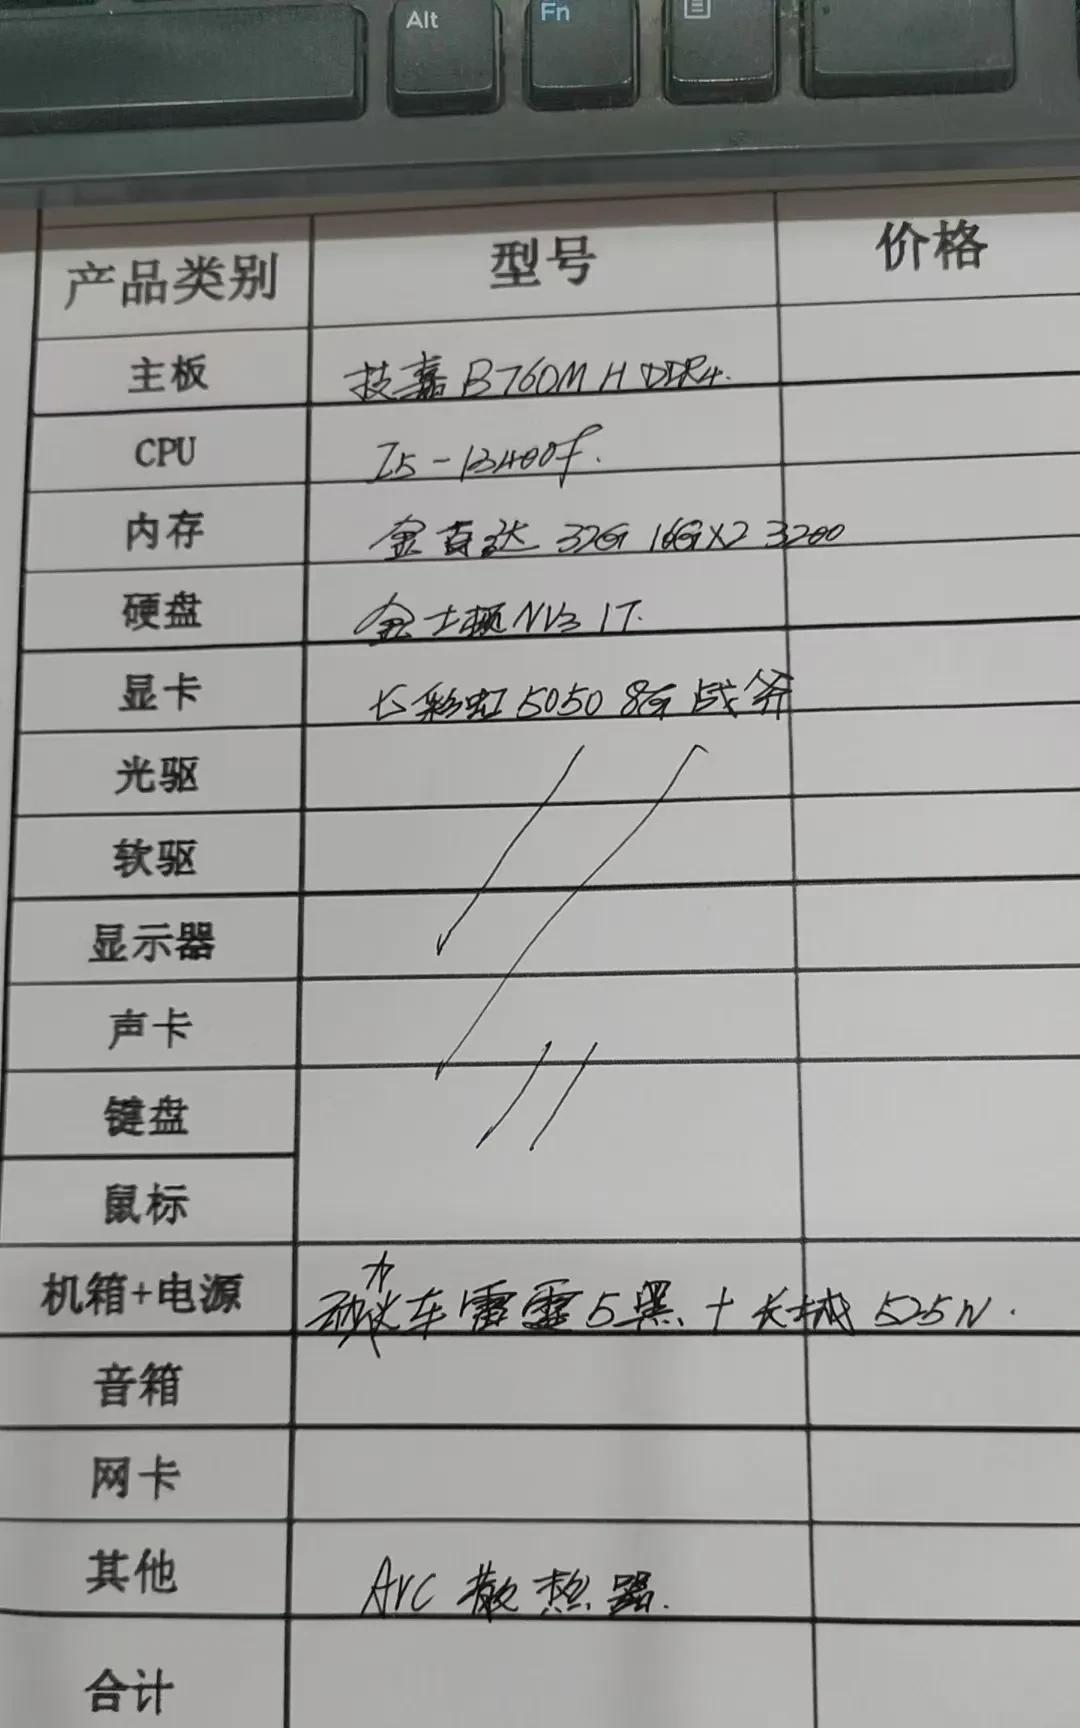 Alt Fn
产品类别 型号 价格
主板 技嘉 B760M H DDR4.
CPU I5-13400f.
内存 金百达 32G 16G×2 3200
硬盘 金士顿 NV3 1T.
显卡 七彩虹 5050 8G 战斧
光驱
软驱
显示器
声卡
键盘
鼠标
机箱+电源 动力火车 雷霆 5 黑 + 长城 525W.
音箱
网卡
其他 Arc 散热器.
合计